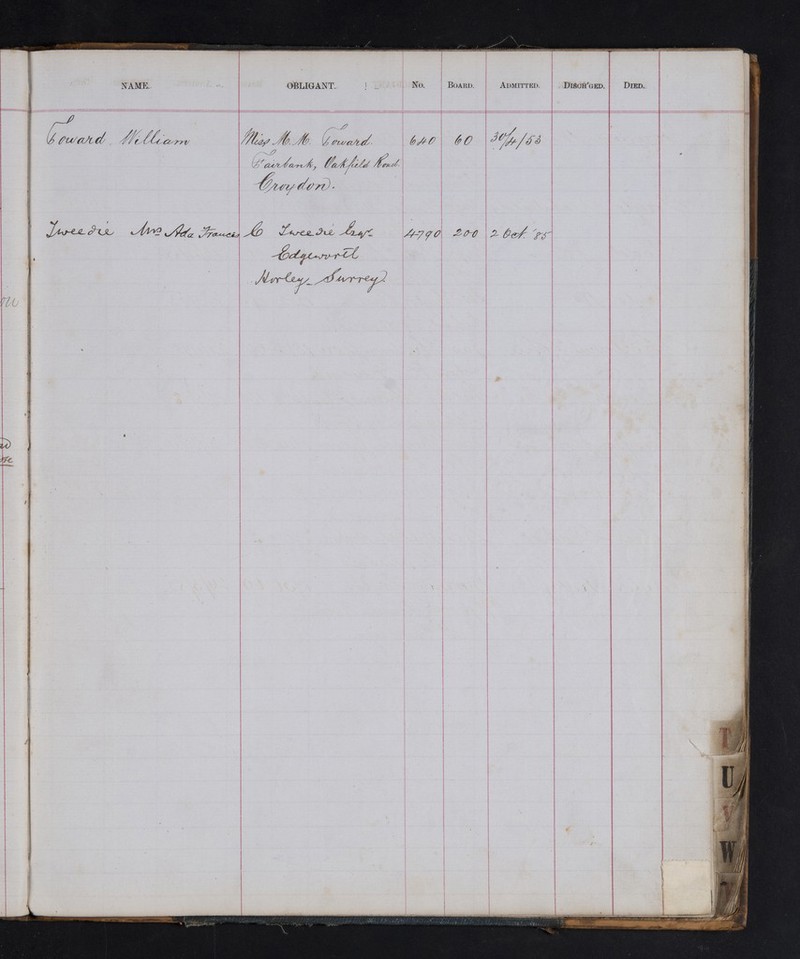 NAME. OBLIGANT. No. BOARD. ADMITTED. DISCH'GED. DIED.
Toward William Miss M. M. Toward 640 60 30/4/53
Fairbank, Oakfield Road
Croydon.
Tweedie Mrs Ada Frances C Tweedie Esqr 4790 200 2 Oct. '85
Edgeworth
Horley Surrey
T
U
V
W